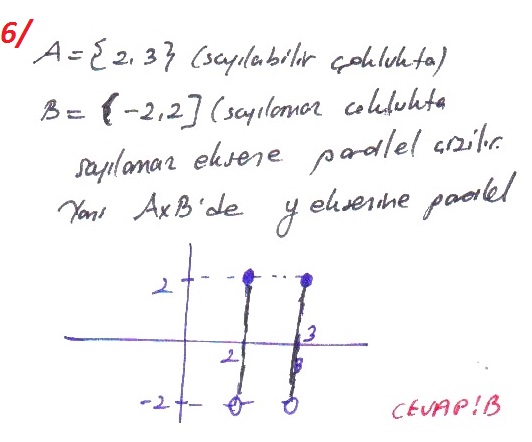 6/
A = {2, 3} (sayılabilir çoklukta)
B = (-2, 2] (sayılamaz coklukta
sayılamaz eksene paralel çizilir.
Yani AxB'de y eksenine paralel
2
3
2
-2
CEVAP!B